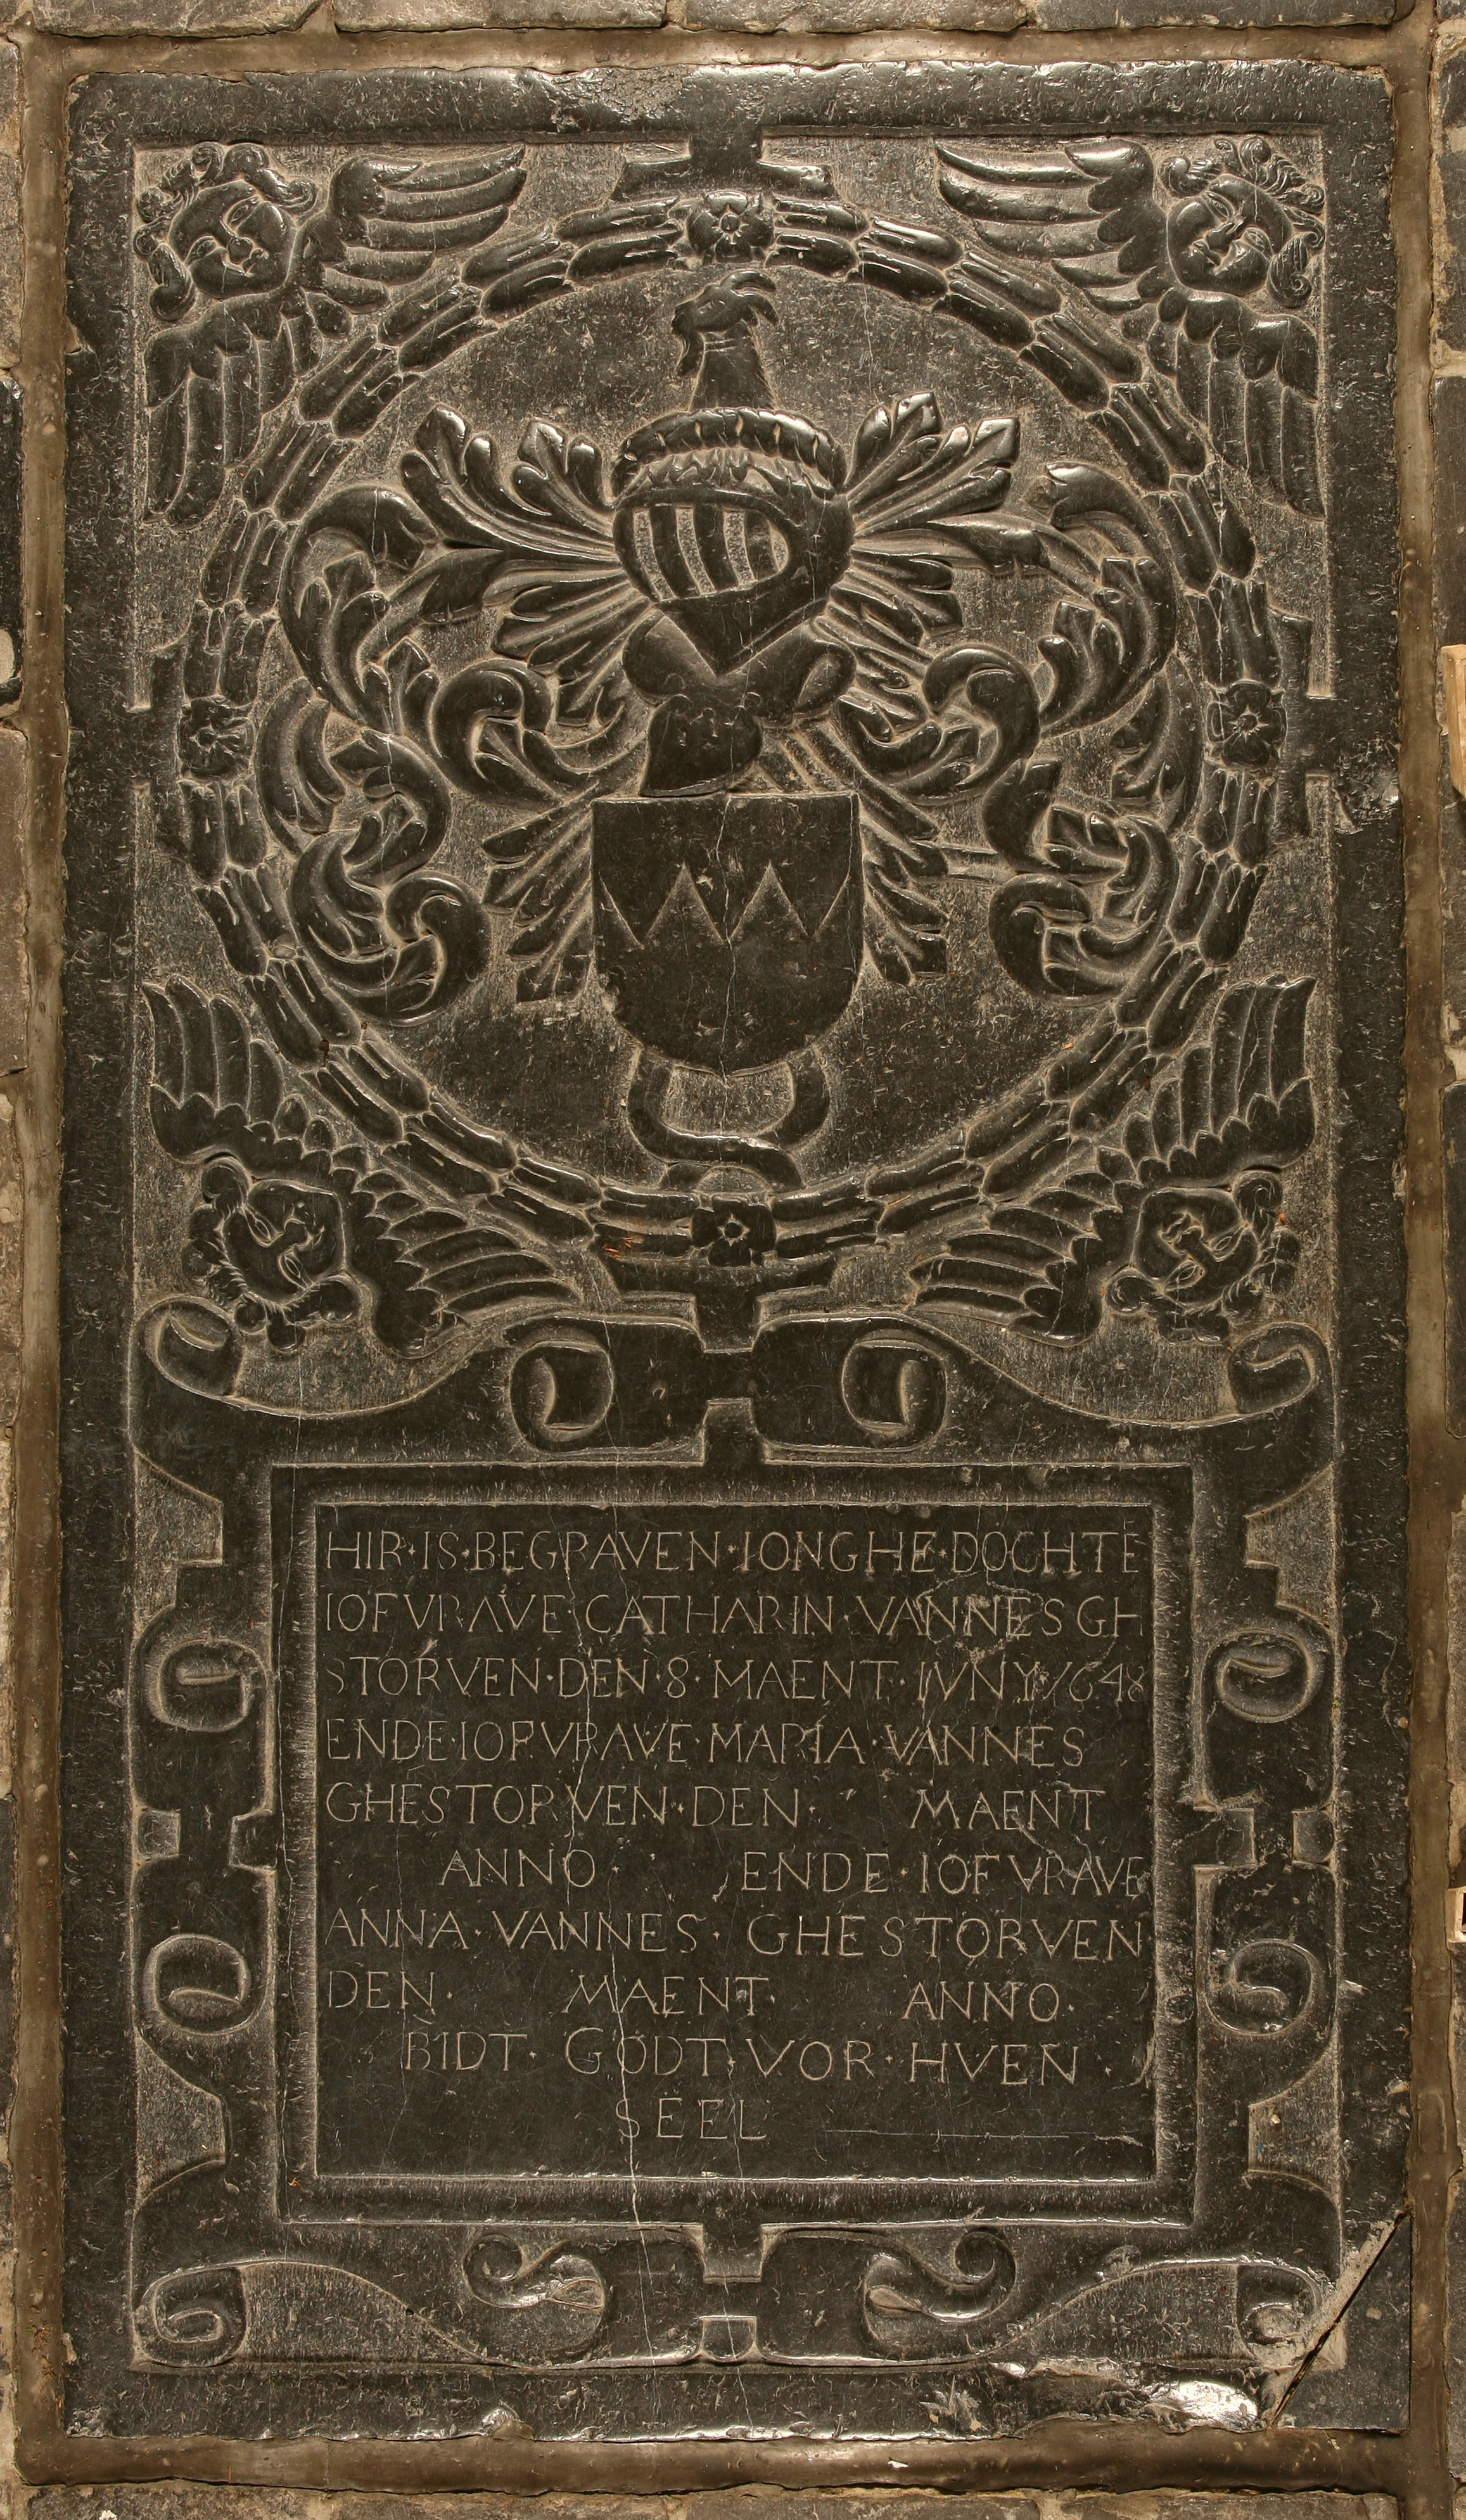 HIR·IS·BEGRAVEN·IONGHE·DOCHTE
IOFVRAVE·CATHARIN·VANNES GH
STORVEN·DEN·8·MAENT·IVNY·1648
ENDE·IOFVRAVE·MARIA·VANNES
GHESTORVEN·DEN· MAENT
ANNO· ENDE·IOFVRAVE
ANNA·VANNES· GHESTORVEN
DEN· MAENT· ANNO·
BIDT· GODT·VOR·HVEN·
SEEL